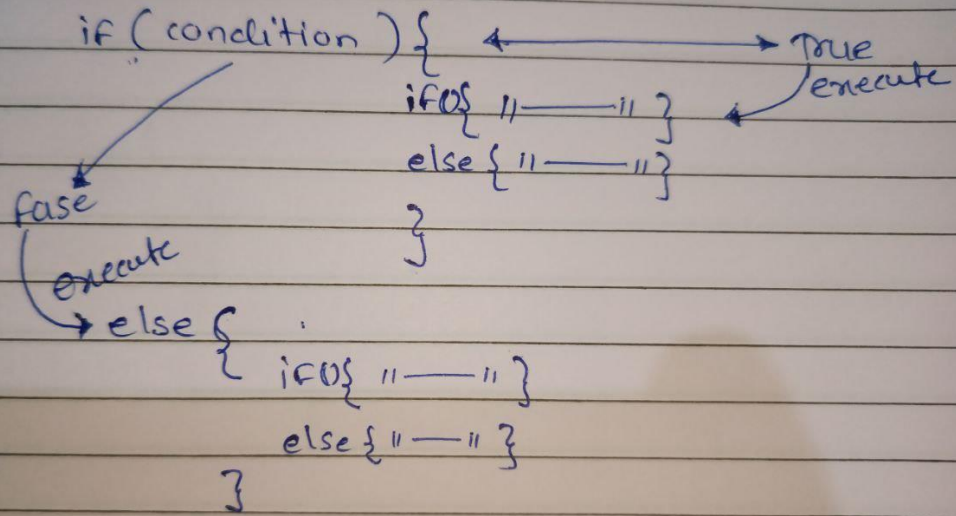 if (condition) { True
execute
if(){ "——" }
else { "——" }
}
fase
execute
else {
if(){ "——" }
else { "——" }
}